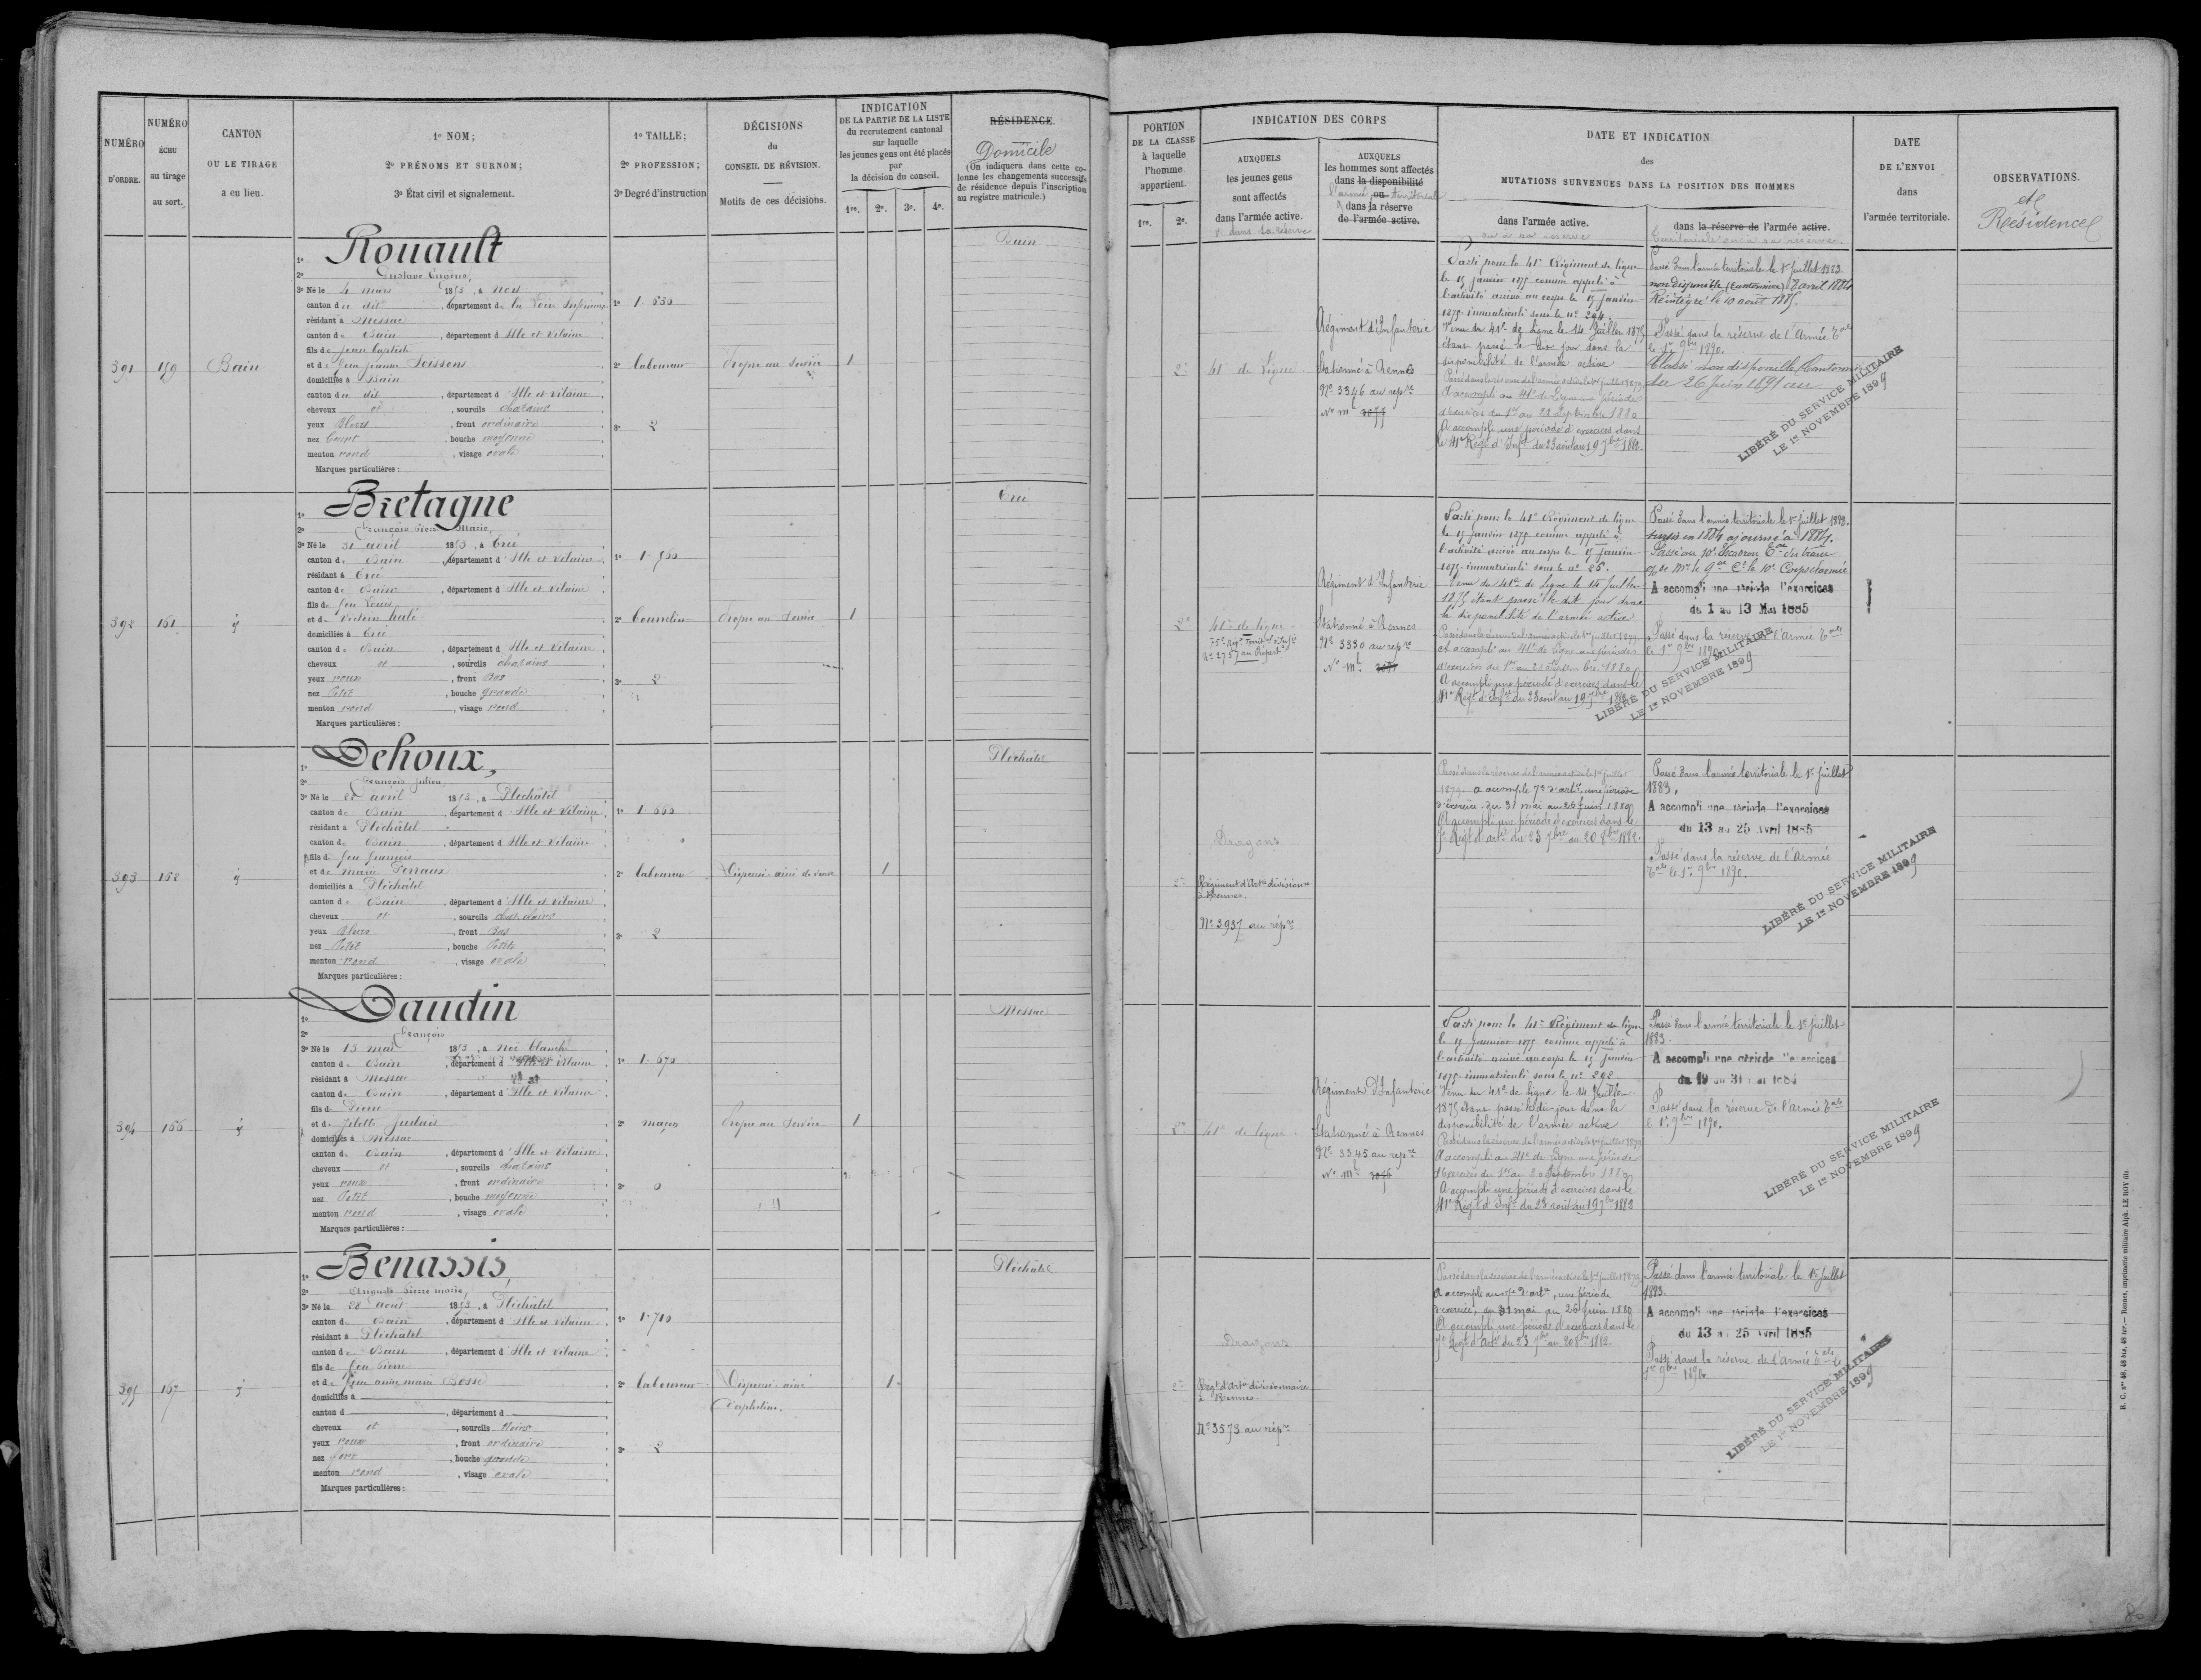 NUMÉRO
D'ORDRE.
NUMÉRO
ÉCHU
au tirage
au sort.
CANTON
OU LE TIRAGE
a eu lieu.
1º NOM;
2º PRÉNOMS ET SURNOM;
3º État civil et signalement.
1º TAILLE;
2º PROFESSION;
3º Degré d'instruction
DÉCISIONS
du
CONSEIL DE RÉVISION.
Motifs de ces décisions.
INDICATION
DE LA PARTIE DE LA LISTE
du recrutement cantonal
sur laquelle
les jeunes gens ont été placés
par
la décision du conseil.
1re. 2e. 3e. 4e.
RÉSIDENCE.
Domicile
(On indiquera dans cette co-
lonne les changements successifs
de résidence depuis l'inscription
au registre matricule.)
391
159
Bain
Rouault
1º
2º Gustave Eugène,
3º Né le 4 mars 1853, à Nort
canton du dit, département de la Loire Inférieure
résidant à Messac
canton de Bain, département d'Ille et Vilaine
fils de Jean Baptiste
et de feue Jeanne Soissons
domiciliés à Bain
canton du dit, département d'Ille et Vilaine
cheveux et, sourcils chatains
yeux Bleus, front ordinaire
nez Court, bouche moyenne
menton rond, visage ovale
Marques particulières:
1º 1.630
2º laboureur
3º 2
Propre au service
1
Bain
392
161
Bretagne
1º
2º François Marie,
3º Né le 31 avril 1853, à Ercé
canton de Bain, département d'Ille et Vilaine
résidant à Ercé
canton de Bain, département d'Ille et Vilaine
fils de feu Louis
et de Victoire Halé
domiciliés à Ercé
canton de Bain, département d'Ille et Vilaine
cheveux et, sourcils chatains
yeux roux, front Bas
nez Petit, bouche grande
menton rond, visage rond
Marques particulières:
1º 1.560
2º
3º 2
Propre au service
1
Ercé
393
162
Dehoux,
1º
2º François Julien
3º Né le 28 avril 1853, à Pléchâtel
canton de Bain, département d'Ille et Vilaine
résidant à Pléchâtel
canton de Bain, département d'Ille et Vilaine
fils de feu François
et de Marie Perraux
domiciliés à Pléchâtel
canton de Bain, département d'Ille et Vilaine
cheveux et, sourcils chat. clairs
yeux Bleus, front Bas
nez Petit, bouche Petite
menton rond, visage ovale
Marques particulières:
1º 1.660
2º laboureur
3º 2
Dispensé ainé de veuve
1
Pléchâtel
394
166
Daudin
1º
2º François
3º Né le 13 mai 1853, à Noë blanche
canton de Bain, département d'Ille et Vilaine
résidant à Messac
canton de Bain, département d'Ille et Vilaine
fils de Pierre
et de Judais
domiciliés à Messac
canton de Bain, département d'Ille et Vilaine
cheveux et, sourcils chatains
yeux roux, front ordinaire
nez Petit, bouche moyenne
menton rond, visage ovale
Marques particulières:
1º 1.670
2º maçon
3º 0
Propre au service
1
Messac
395
167
Benassis,
1º
2º Auguste Pierre Marie,
3º Né le 28 août 1853, à Pléchâtel
canton de Bain, département d'Ille et Vilaine
résidant à Pléchâtel
canton de Bain, département d'Ille et Vilaine
fils de feu Pierre
et de feue Anne Marie Bossé
domiciliés à
canton d, département d
cheveux et, sourcils Noirs
yeux roux, front ordinaire
nez fort, bouche grande
menton rond, visage ovale
Marques particulières:
1º 1.710
2º laboureur
3º 2
Dispensé ainé
d'orphelins.
1
Pléchâtel
PORTION
DE LA CLASSE
à laquelle
l'homme
appartient.
1re. 2e.
INDICATION DES CORPS
AUXQUELS
les jeunes gens
sont affectés
dans l'armée active.
et dans sa réserve
AUXQUELS
les hommes sont affectés
dans la disponibilité
l'armée ou territoriale
dans la réserve
de l'armée active.
DATE ET INDICATION
des
MUTATIONS SURVENUES DANS LA POSITION DES HOMMES
dans l'armée active.
ou à sa réserve
dans la réserve de l'armée active.
territoriale ou à sa réserve.
DATE
DE L'ENVOI
dans
l'armée territoriale.
OBSERVATIONS.
et
Résidence
2e
41e de Ligne
Régiment d'Infanterie
Stationné à Rennes
Nº 3346 au repre
Nº Ml 3077
Parti pour le 41e Régiment de ligne
le 15 janvier 1875 comme appelé à
l'activité arrivé au corps le 15 janvier
1875 immatriculé sous le nº 294.
Venu du 41e de Ligne le 14 Juillet 1875
étant passé le dit jour dans la
disponibilité de l'armée active
Passé dans la réserve de l'armée active le 1er juillet 1879
A accompli au 41e de Ligne une période
d'exercices du 1er au 28 Septembre 1880
A accompli une période d'exercices dans
le 41e Régt d'Infie du 23 août au 19 7bre 1882.
Passé dans l'armée territoriale le 1er Juillet 1883
non disponible (Cantonnier) 8 avril 1884
Réintégré le 10 août 1885.
Passé dans la réserve de l'Armée tale
le 1er 9bre 1890.
Classé non disponible Cantonnier
du 26 Juin 1891 au
LIBÉRÉ DU SERVICE MILITAIRE
LE 1er NOVEMBRE 1899
2e
41e de ligne
75e Régt Territ d'Infie
Nº 2757 au Repert
Régiment d'Infanterie
Stationné à Rennes
Nº 3330 au repre
Nº Ml
Parti pour le 41e Régiment de ligne
le 15 janvier 1875 comme appelé à
l'activité arrivé au corps le 15 janvier
1875 immatriculé sous le nº 25.
Venu du 41e de Ligne le 14 Juillet
1875 étant passé le dit jour dans
la disponibilité de l'armée active
Passé dans la réserve de l'armée active le 1er juillet 1879
A accompli au 41e de Ligne une période
d'exercices du 1er au 28 Septembre 1880
A accompli une période d'exercices dans le
41e Régt d'Infie du 23 août au 19 7bre 1882
Passé dans l'armée territoriale le 1er Juillet 1883.
Sursis en 1884 ajourné à 1885.
Passé au 10e Escadron tal du train
A accompli une période d'exercices
du 1 au 13 Mai 1885
Passé dans la réserve de l'Armée tale
le 1er 9bre 1890
LIBÉRÉ DU SERVICE MILITAIRE
LE 1er NOVEMBRE 1899
2e
Dragons
Régiment d'Artie divisionre
à Rennes.
Nº 3937 au répre
Passé dans la réserve de l'armée active le 1er juillet
1879. a accompli 7e d'artie, une période
d'exercice du 31 mai au 26 Juin 1880
A accompli une période d'exercices dans le
7e Régt d'artie du 23 7bre au 20 8bre 1882.
Passé dans l'armée territoriale le 1er Juillet
1883.
A accompli une période d'exercices
du 13 au 25 Avril 1885
Passé dans la réserve de l'Armée
tale le 1er 9bre 1890.
LIBÉRÉ DU SERVICE MILITAIRE
LE 1er NOVEMBRE 1899
2e
41e de ligne
Régiment d'Infanterie
Stationné à Rennes
Nº 3345 au repre
Nº Ml 3075
Parti pour le 41e Régiment de ligne
le 15 janvier 1875 comme appelé à
l'activité arrivé au corps le 15 janvier
1875 immatriculé sous le nº 292.
Venu du 41e de Ligne le 14 Juillet
1875 étant passé le dit jour dans la
disponibilité de l'armée active
Passé dans la réserve de l'armée active le 1er juillet 1879
A accompli au 41e de Ligne une période
d'exercices du 1er au 28 Septembre 1880
A accompli une période d'exercices dans le
41e Régt d'Infie du 23 août au 19 7bre 1882
Passé dans l'armée territoriale le 1er Juillet
1883.
A accompli une période d'exercices
du 19 au 31 mai
Passé dans la réserve de l'Armée tale
le 1er 9bre 1890.
LIBÉRÉ DU SERVICE MILITAIRE
LE 1er NOVEMBRE 1899
2e
Dragons
Régt d'Artie divisionnaire
à Rennes.
Nº 3573 au répre
Passé dans la réserve de l'armée active le 1er juillet 1879
A accompli au 7e d'artie, une période
d'exercice, du 31 mai au 26 Juin 1880
A accompli une période d'exercices dans le
7e Régt d'Artie du 23 7bre au 20 8bre 1882.
Passé dans l'armée territoriale le 1er Juillet
1883.
A accompli une période d'exercices
du 13 au 25 Avril 1885
Passé dans la réserve de l'Armée tale le
1er 9bre 1890.
LIBÉRÉ DU SERVICE MILITAIRE
LE 1er NOVEMBRE 1899
R. C. nos 46, 48 bis, 48 ter. — Rennes, imprimerie militaire Alph. LE ROY fils